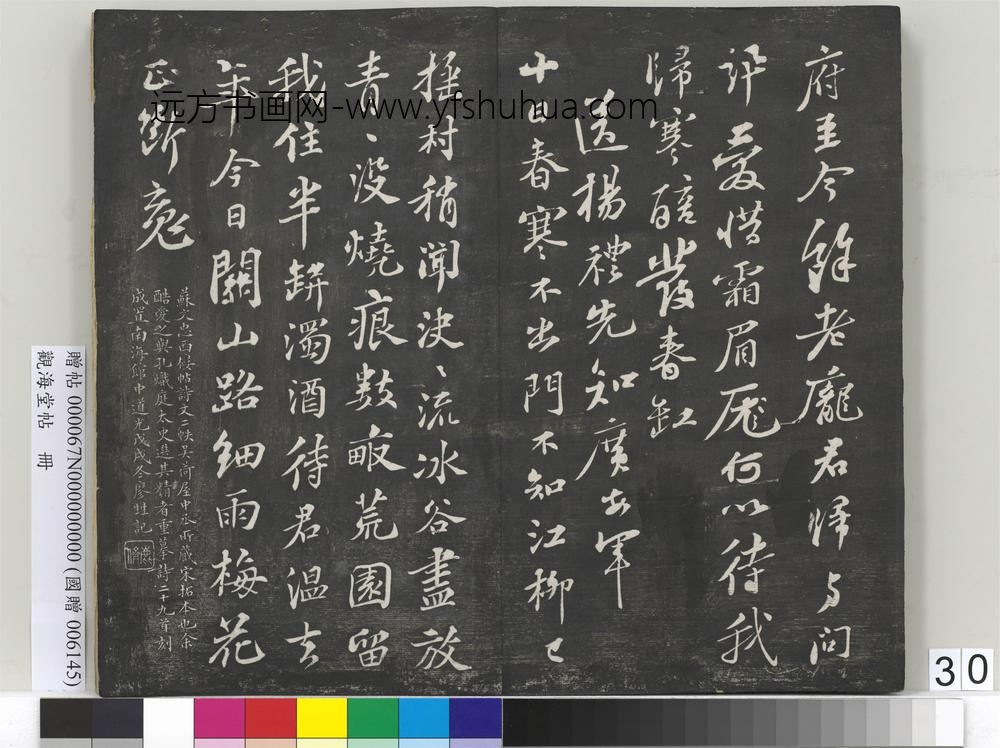 府至今餘老龐君歸与問
訊愛惜霜眉厖何以待我
歸寒醅發春缸
送楊禮先知廣安軍
十日春寒不出門不知江柳已
搖村稍聞決〻流冰谷盡放
青〻沒燒痕數畝荒園留
我住半缾濁酒待君溫去
年今日關山路細雨梅花
正斷魂
蘇文忠西樓帖詩文二帙吳荷屋中丞所藏宋拓本也余
酷愛之與孔熾庭太史選其精者重摹詩二十九首刻
成置南海館中道光戊戌冬廖甡記
远方书画网-www.yfshuhua.com
贈帖 000067N000000000 (國贈 006145)
觀海堂帖 冊
30